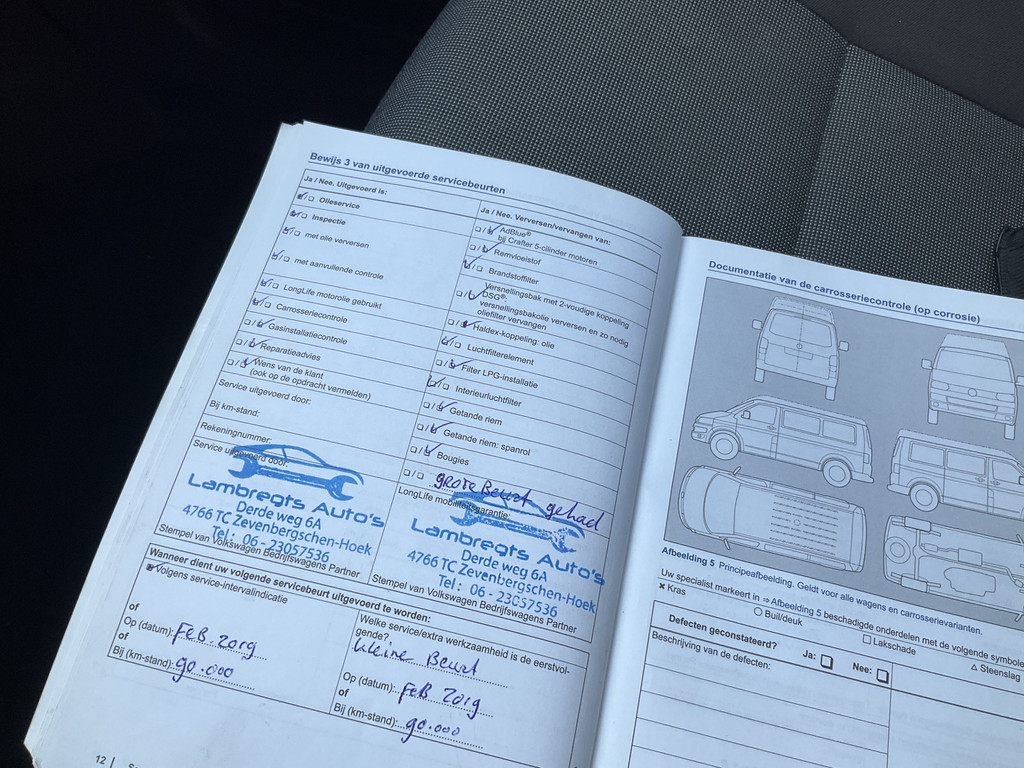 Bewijs 3 van uitgevoerde servicebeurten
Ja / Nee. Uitgevoerd is:
Olieservice
Inspectie
met olie verversen
met aanvullende controle
LongLife motorolie gebruikt
Carrosseriecontrole
Gasinstallatiecontrole
Reparatieadvies
Wens van de klant
(ook op de opdracht vermelden)
Service uitgevoerd door:
Bij km-stand:
Rekeningnummer:
Service uitgevoerd door:
Lambregts Auto's
Derde weg 6A
4766 TC Zevenbergschen-Hoek
Tel: 06 - 23057536
Stempel van Volkswagen Bedrijfswagens Partner
Ja / Nee. Verversen/vervangen van:
AdBlue®
bij Crafter 5-cilinder motoren
Remvloeistof
Brandstoffilter
Versnellingsbak met 2-voudige koppeling
DSG®:
versnellingsbakolie verversen en zo nodig
oliefilter vervangen
Haldex-koppeling: olie
Luchtfilterelement
Filter LPG-installatie
Interieurluchtfilter
Getande riem
Getande riem: spanrol
Bougies
grote Beurt gehad
LongLife mobiliteitsgarantie:
Lambregts Auto's
Derde weg 6A
4766 TC Zevenbergschen-Hoek
Tel: 06 - 23057536
Stempel van Volkswagen Bedrijfswagens Partner
Wanneer dient uw volgende servicebeurt uitgevoerd te worden:
Volgens service-intervalindicatie
of
Op (datum): FEB 2019
of
Bij (km-stand): 90.000
Welke service/extra werkzaamheid is de eerstvol-
gende?
kleine Beurt
Op (datum): FEB 2019
of
Bij (km-stand): 90.000
12
Documentatie van de carrosseriecontrole (op corrosie)
Afbeelding 5 Principeafbeelding. Geldt voor alle wagens en carrosserievarianten.
Uw specialist markeert in ⇒ Afbeelding 5 beschadigde onderdelen met de volgende
× Kras
○ Buil/deuk
□ Lakschade
△ Steenslag
Defecten geconstateerd?
Ja:
Nee:
Beschrijving van de defecten: